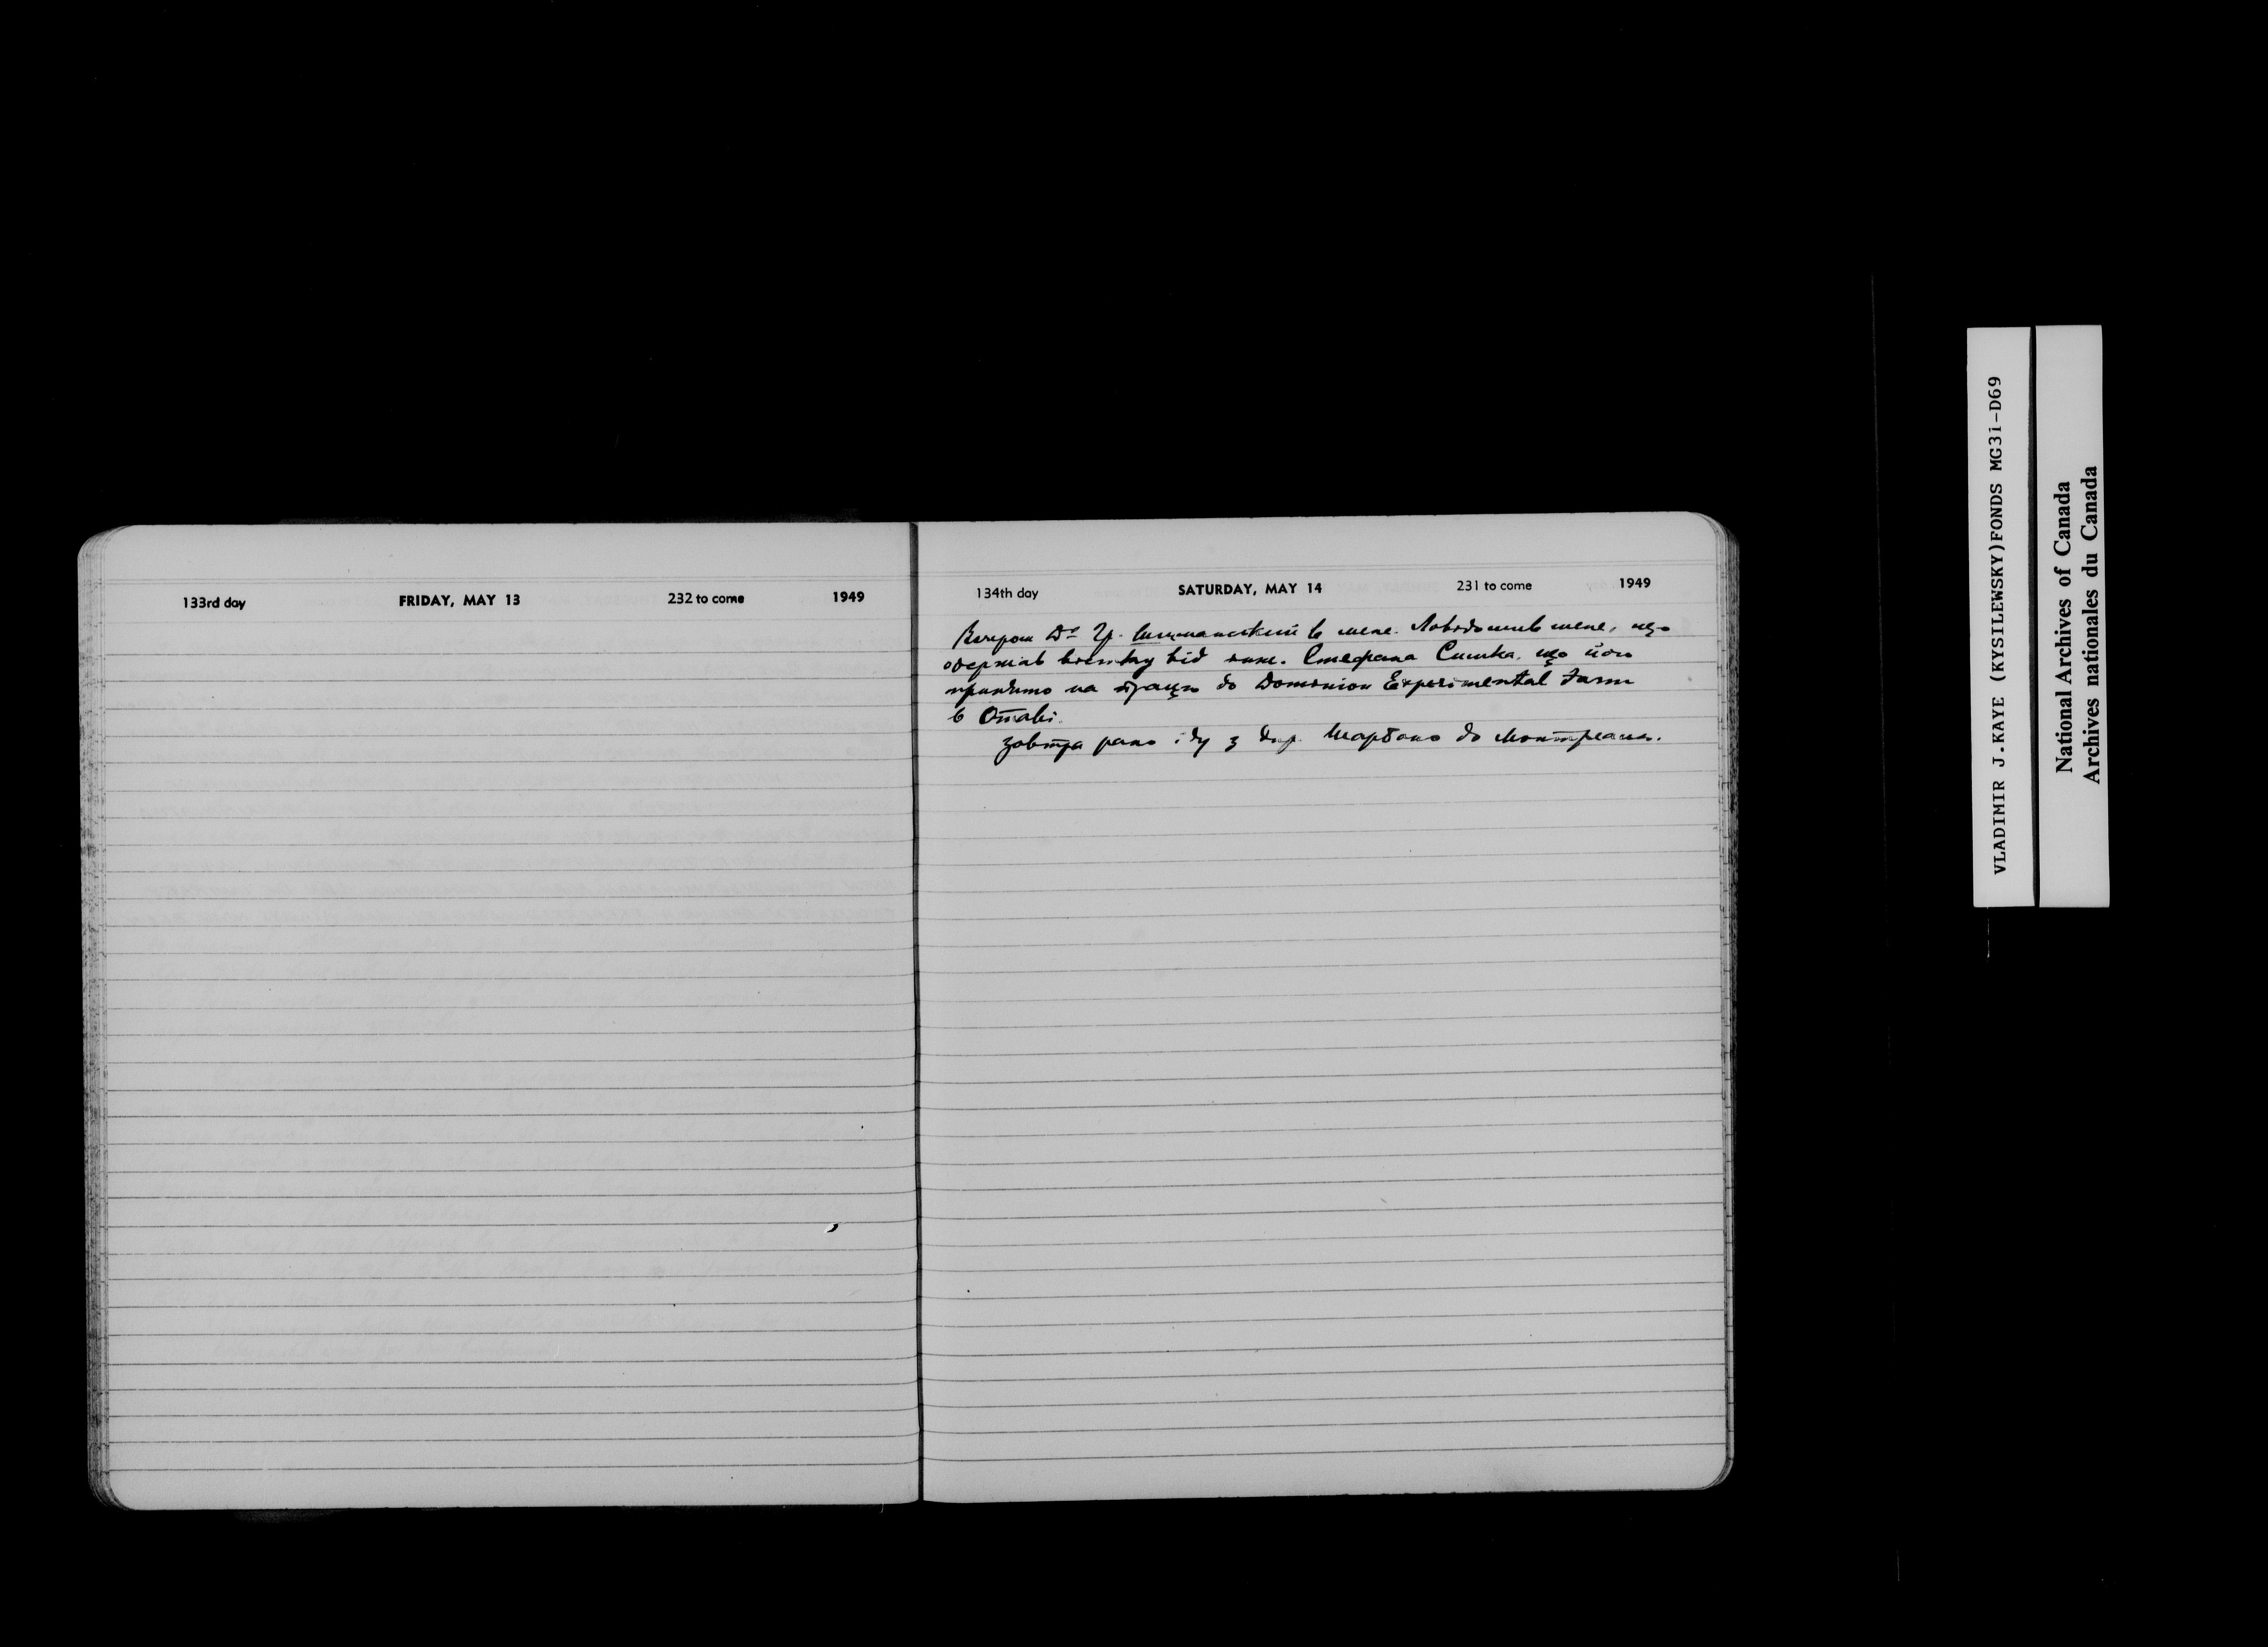 133rd day FRIDAY, MAY 13 232 to come 1949
134th day SATURDAY, MAY 14 231 to come 1949
Вечером Др Гр. в мене. Повідомив мене, що
одержав вістку від инж. Стефана Симка, що його
принято на працю до Dominion Experimental Farm
в Отаві.
Завтра рано їду з дир. Шарбоно до Монтреалю.
VLADIMIR J.KAYE (KYSILEWSKY)FONDS MG31-D69
National Archives of Canada
Archives nationales du Canada